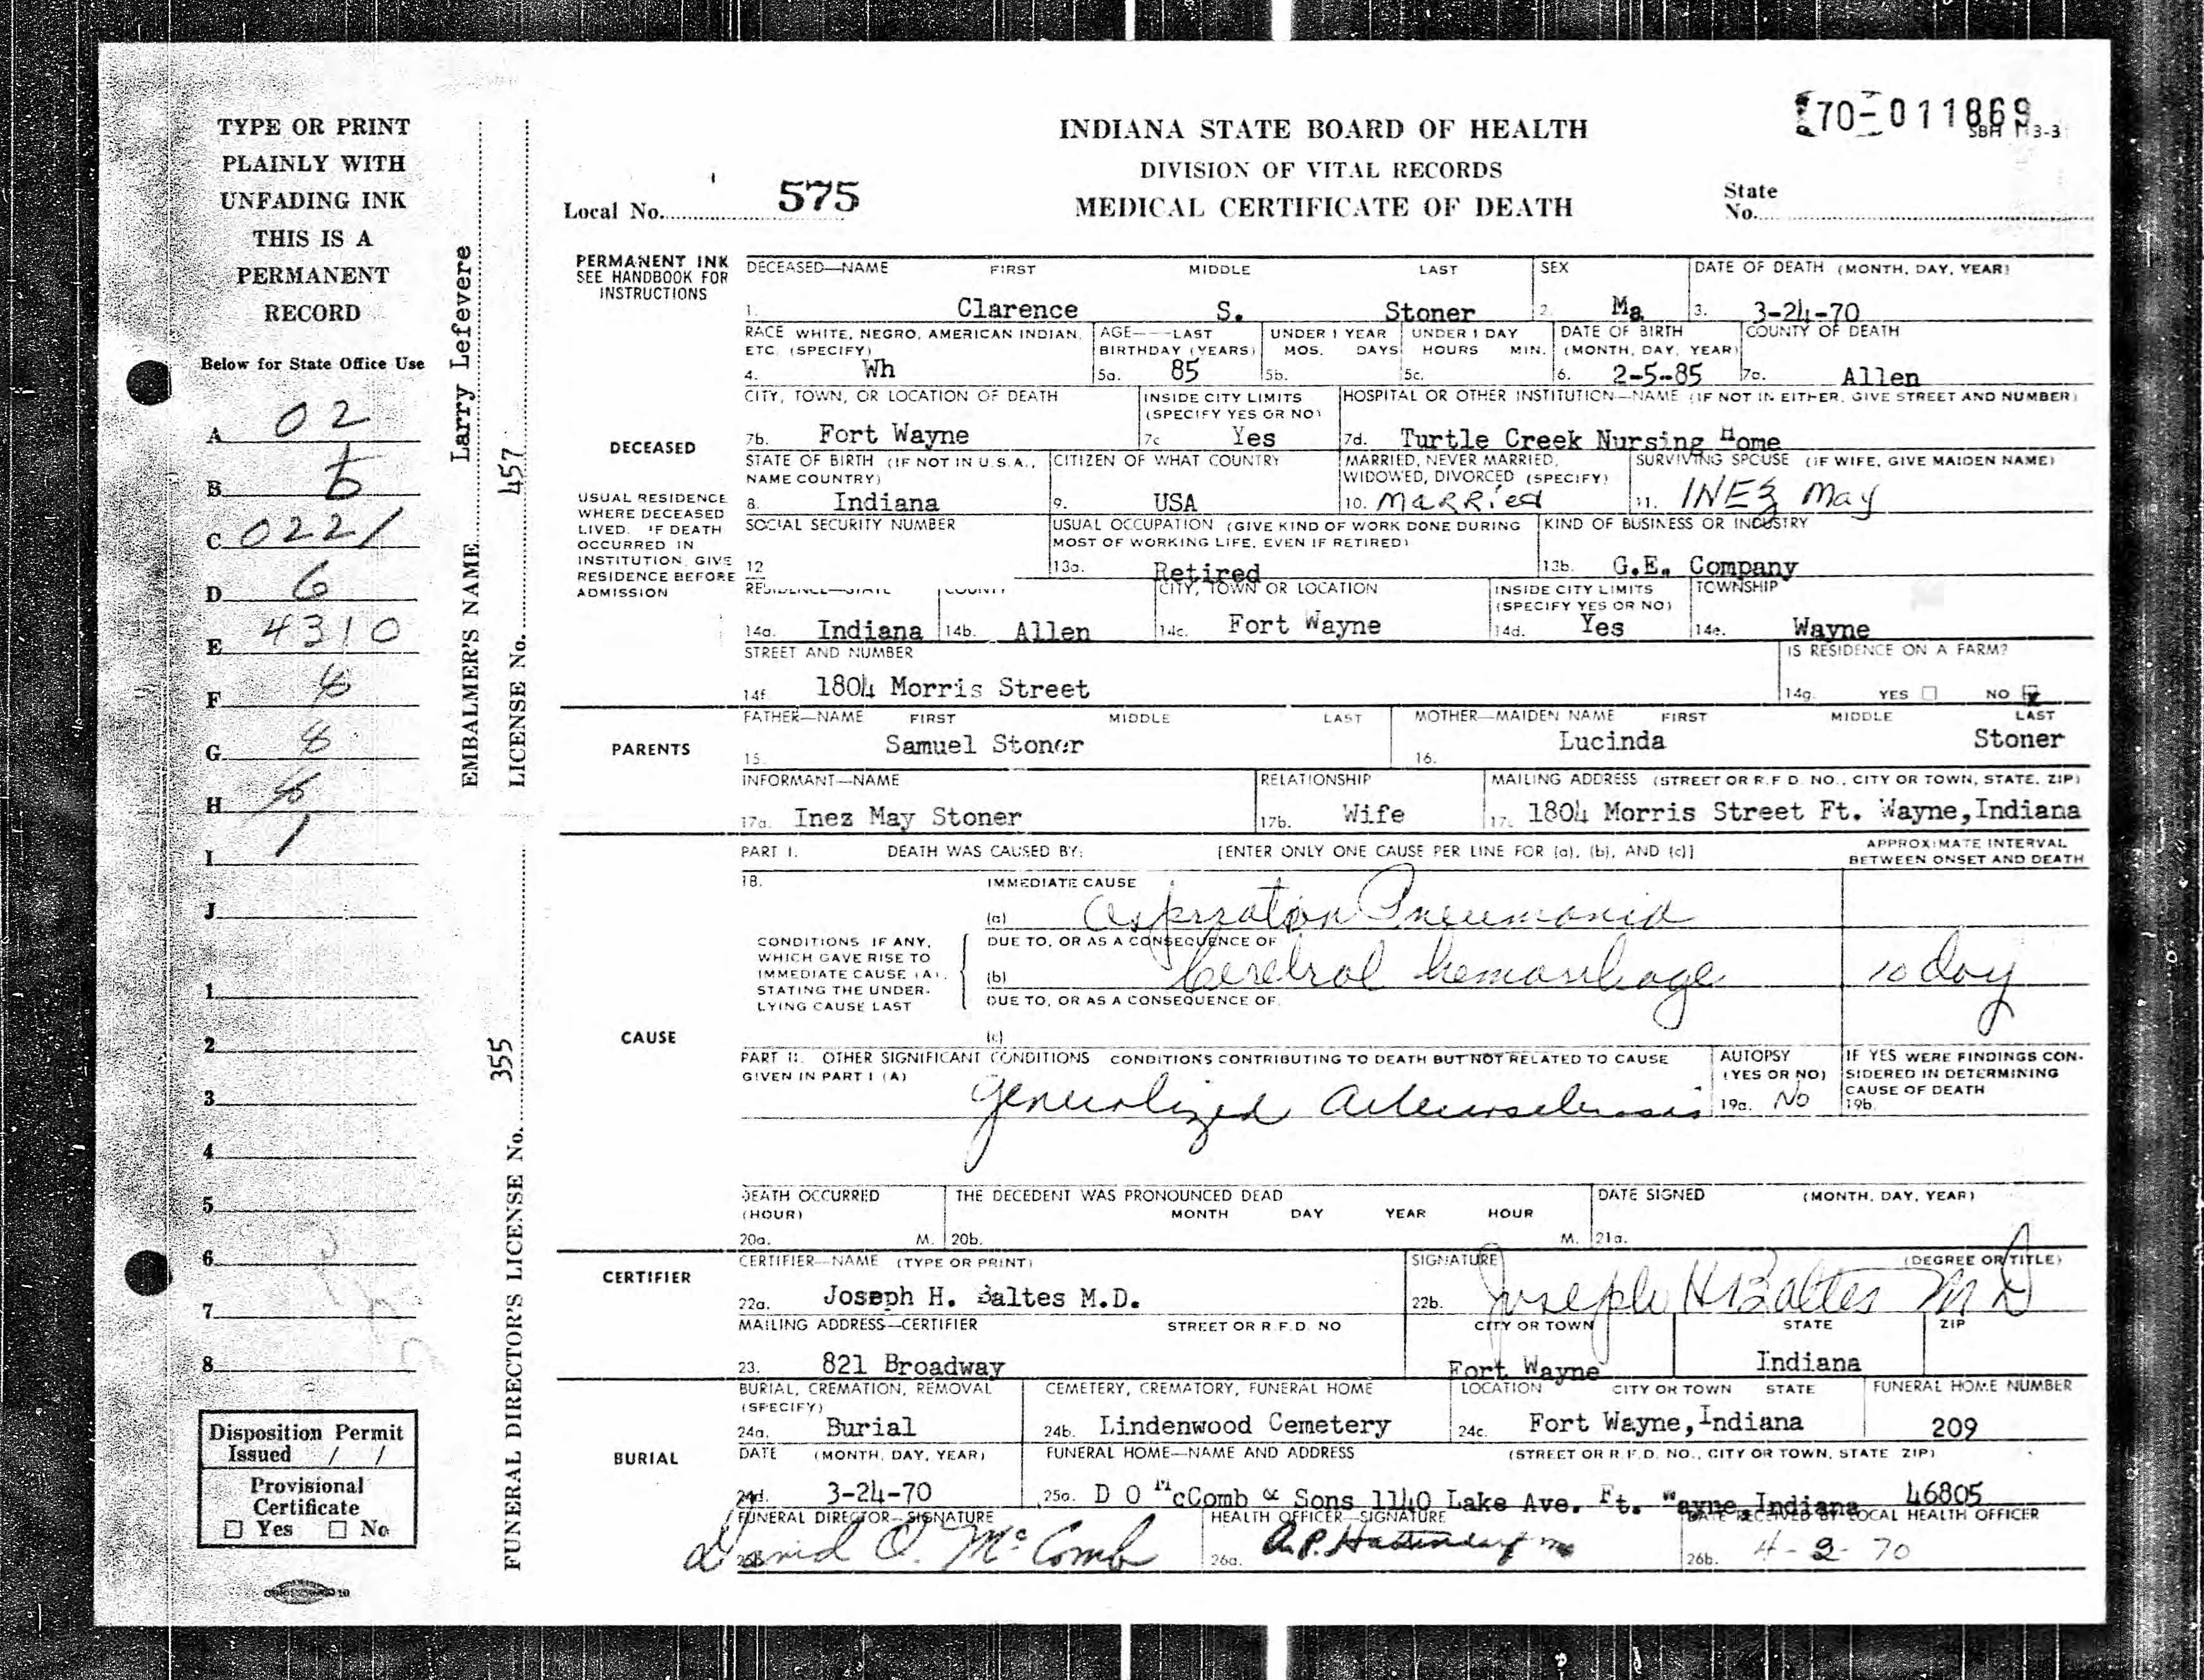 TYPE OR PRINT
PLAINLY WITH
UNFADING INK
THIS IS A
PERMANENT
RECORD
Below for State Office Use
A 02
B
C 0221
D 6
E 4310
F 8
G 8
H
I 1
J
1
2
3
4
5
6
7
8
Disposition Permit
Issued / /
Provisional
Certificate
☐ Yes ☐ No
EMBALMER'S NAME Larry Lefevere
LICENSE No. 457
FUNERAL DIRECTOR'S LICENSE No. 355
70-011869
SBH
INDIANA STATE BOARD OF HEALTH
DIVISION OF VITAL RECORDS
MEDICAL CERTIFICATE OF DEATH
Local No. 575
State
No.
PERMANENT INK
SEE HANDBOOK FOR
INSTRUCTIONS
DECEASED—NAME FIRST MIDDLE LAST SEX DATE OF DEATH (MONTH, DAY, YEAR)
1. Clarence S. Stoner 2. Ma 3. 3-24-70
RACE WHITE, NEGRO, AMERICAN INDIAN, AGE—LAST UNDER 1 YEAR UNDER 1 DAY DATE OF BIRTH COUNTY OF DEATH
ETC. (SPECIFY) BIRTHDAY (YEARS) MOS. DAYS HOURS MIN. (MONTH, DAY, YEAR)
4. Wh 5a. 85 5b. 5c. 6. 2-5-85 7a. Allen
CITY, TOWN, OR LOCATION OF DEATH INSIDE CITY LIMITS HOSPITAL OR OTHER INSTITUTION—NAME (IF NOT IN EITHER, GIVE STREET AND NUMBER)
(SPECIFY YES OR NO)
7b. Fort Wayne 7c Yes 7d. Turtle Creek Nursing Home
DECEASED
STATE OF BIRTH (IF NOT IN U.S.A., CITIZEN OF WHAT COUNTRY MARRIED, NEVER MARRIED, SURVIVING SPOUSE (IF WIFE, GIVE MAIDEN NAME)
NAME COUNTRY) WIDOWED, DIVORCED (SPECIFY)
8. Indiana 9. USA 10. Married 11. INEZ May
USUAL RESIDENCE
WHERE DECEASED
LIVED. IF DEATH
OCCURRED IN
INSTITUTION, GIVE
RESIDENCE BEFORE
ADMISSION
SOCIAL SECURITY NUMBER USUAL OCCUPATION (GIVE KIND OF WORK DONE DURING KIND OF BUSINESS OR INDUSTRY
MOST OF WORKING LIFE, EVEN IF RETIRED)
12 13a. Retired 13b. G.E. Company
RESIDENCE—STATE COUNTY CITY, TOWN OR LOCATION INSIDE CITY LIMITS TOWNSHIP
(SPECIFY YES OR NO)
14a. Indiana 14b. Allen 14c. Fort Wayne 14d. Yes 14e. Wayne
STREET AND NUMBER IS RESIDENCE ON A FARM?
14f. 1804 Morris Street 14g. YES ☐ NO ☒
PARENTS
FATHER—NAME FIRST MIDDLE LAST MOTHER—MAIDEN NAME FIRST MIDDLE LAST
15. Samuel Stoner 16. Lucinda Stoner
INFORMANT—NAME RELATIONSHIP MAILING ADDRESS (STREET OR R.F.D. NO., CITY OR TOWN, STATE, ZIP)
17a. Inez May Stoner 17b. Wife 17c. 1804 Morris Street Ft. Wayne, Indiana
PART I. DEATH WAS CAUSED BY: [ENTER ONLY ONE CAUSE PER LINE FOR (a), (b), AND (c)] APPROXIMATE INTERVAL
BETWEEN ONSET AND DEATH
18. IMMEDIATE CAUSE
(a) Aspiration Pneumonia
CONDITIONS IF ANY,
WHICH GAVE RISE TO
IMMEDIATE CAUSE (A),
STATING THE UNDER-
LYING CAUSE LAST
DUE TO, OR AS A CONSEQUENCE OF
(b) Cerebral hemorrhage 10 day
DUE TO, OR AS A CONSEQUENCE OF
(c)
CAUSE
PART II. OTHER SIGNIFICANT CONDITIONS CONDITIONS CONTRIBUTING TO DEATH BUT NOT RELATED TO CAUSE AUTOPSY IF YES WERE FINDINGS CON-
GIVEN IN PART I (A) (YES OR NO) SIDERED IN DETERMINING
CAUSE OF DEATH
Generalized Arteriosclerosis 19a. No 19b.
DEATH OCCURRED THE DECEDENT WAS PRONOUNCED DEAD DATE SIGNED (MONTH, DAY, YEAR)
(HOUR) MONTH DAY YEAR HOUR
20a. M. 20b. M. 21a.
CERTIFIER
CERTIFIER—NAME (TYPE OR PRINT) SIGNATURE (DEGREE OR TITLE)
22a. Joseph H. Baltes M.D. 22b. Joseph H Baltes M D
MAILING ADDRESS—CERTIFIER STREET OR R.F.D. NO CITY OR TOWN STATE ZIP
23. 821 Broadway Fort Wayne Indiana
BURIAL, CREMATION, REMOVAL CEMETERY, CREMATORY, FUNERAL HOME LOCATION CITY OR TOWN STATE FUNERAL HOME NUMBER
(SPECIFY)
24a. Burial 24b. Lindenwood Cemetery 24c. Fort Wayne, Indiana 209
BURIAL
DATE (MONTH, DAY, YEAR) FUNERAL HOME—NAME AND ADDRESS (STREET OR R.F.D. NO., CITY OR TOWN, STATE ZIP)
24d. 3-24-70 25a. D O McComb & Sons 1140 Lake Ave. Ft. Wayne, Indiana 46805
FUNERAL DIRECTOR—SIGNATURE HEALTH OFFICER—SIGNATURE DATE RECEIVED BY LOCAL HEALTH OFFICER
David O. McComb 26a. 26b. 4-2-70